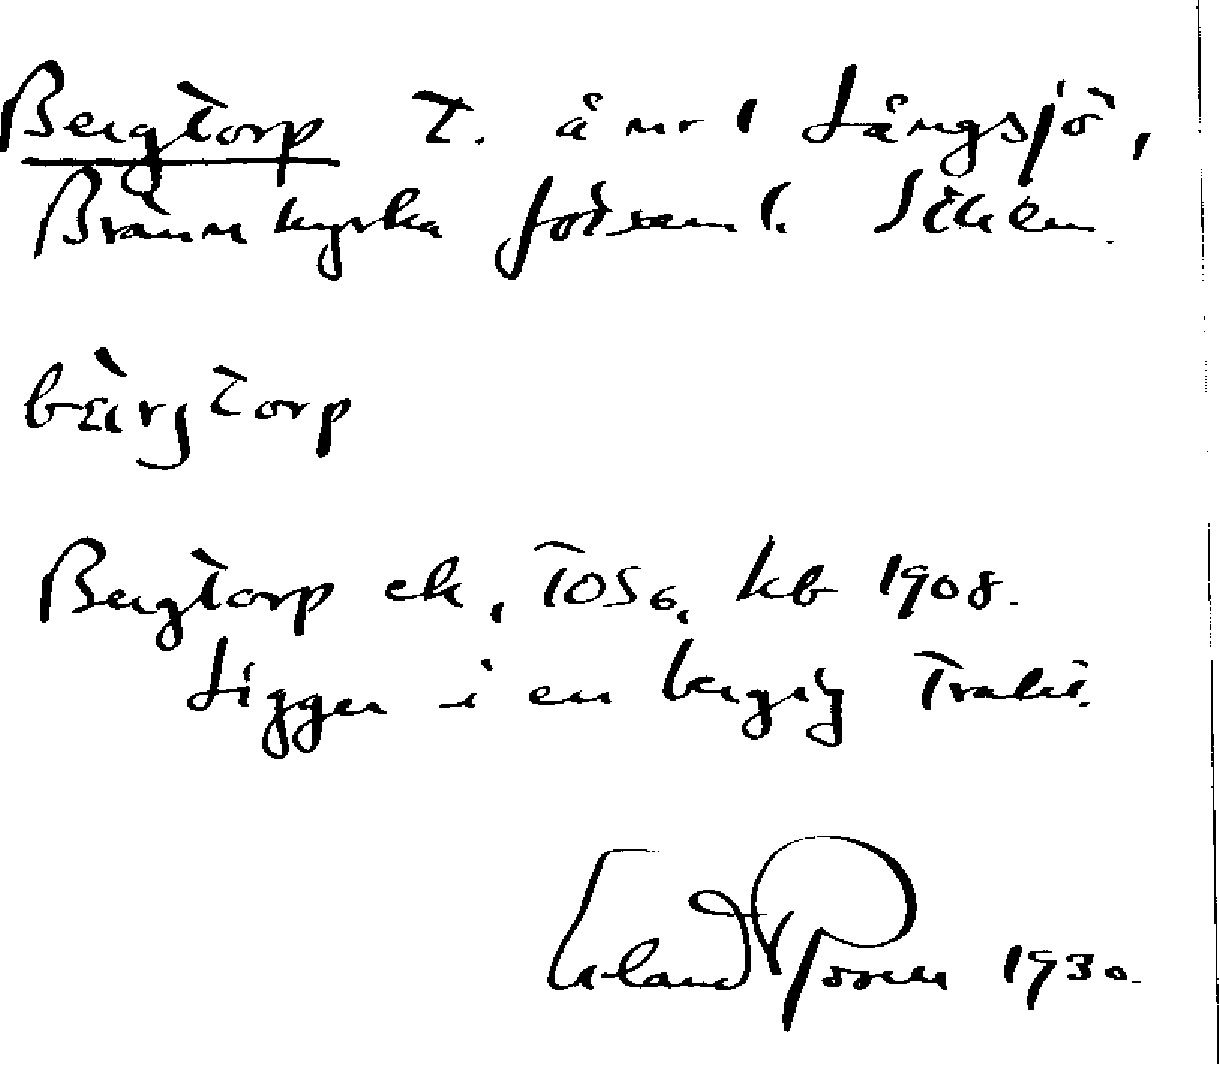 Bergtorp t. å nr 1 Långsjö,
Brännkyrka sockn Sthlm.
bärjtorp
Bergtorp ek, TOS6, kb 1908.
Ligger i en bergig trakt.
Erland Rosell 1930.